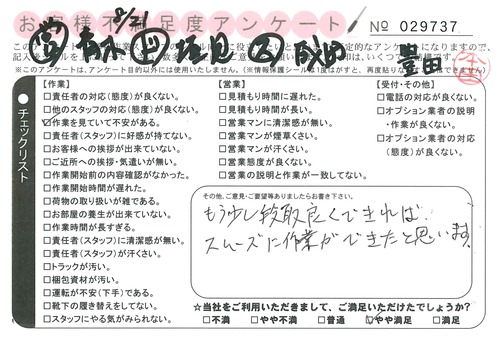 お客様不満足度アンケート
8/21
№ 029737
豊田
チェックリスト
【作業】
□責任者の対応(態度)が良くない。
□他のスタッフの対応(態度)が良くない。
☑作業を見ていて不安がある。
□責任者(スタッフ)に好感が持てない。
□お客様への挨拶が出来ていない。
□ご近所への挨拶・気遣いが無い。
□作業開始前の内容確認がなかった。
□作業開始時間が遅れた。
□荷物の取り扱いが雑である。
□お部屋の養生が出来ていない。
□作業時間が長すぎる。
□責任者(スタッフ)に清潔感が無い。
□責任者(スタッフ)が汗くさい。
□トラックが汚い。
□梱包資材が汚い。
□運転が不安(下手)である。
□靴下の履き替えをしてない。
□スタッフにやる気がみられない。
【営業】
□見積もり時間に遅れた。
□見積もり時間が長い。
□営業マンに清潔感が無い。
□営業マンが煙草くさい。
□営業マンが汗くさい。
□営業態度が良くない。
□営業の説明と作業が一致してない。
【受付・その他】
□電話の対応が良くない。
□オプション業者の説明
・作業が良くない。
□オプション業者の対応
(態度)が良くない。
その他、ご意見・ご要望等ありましたらお書き下さい。
もう少し段取良くできれば
スムーズに作業ができたと思います。
☆当社をご利用いただきまして、ご満足いただけたでしょうか?
□不満 □やや不満 □普通 ☑やや満足 □満足